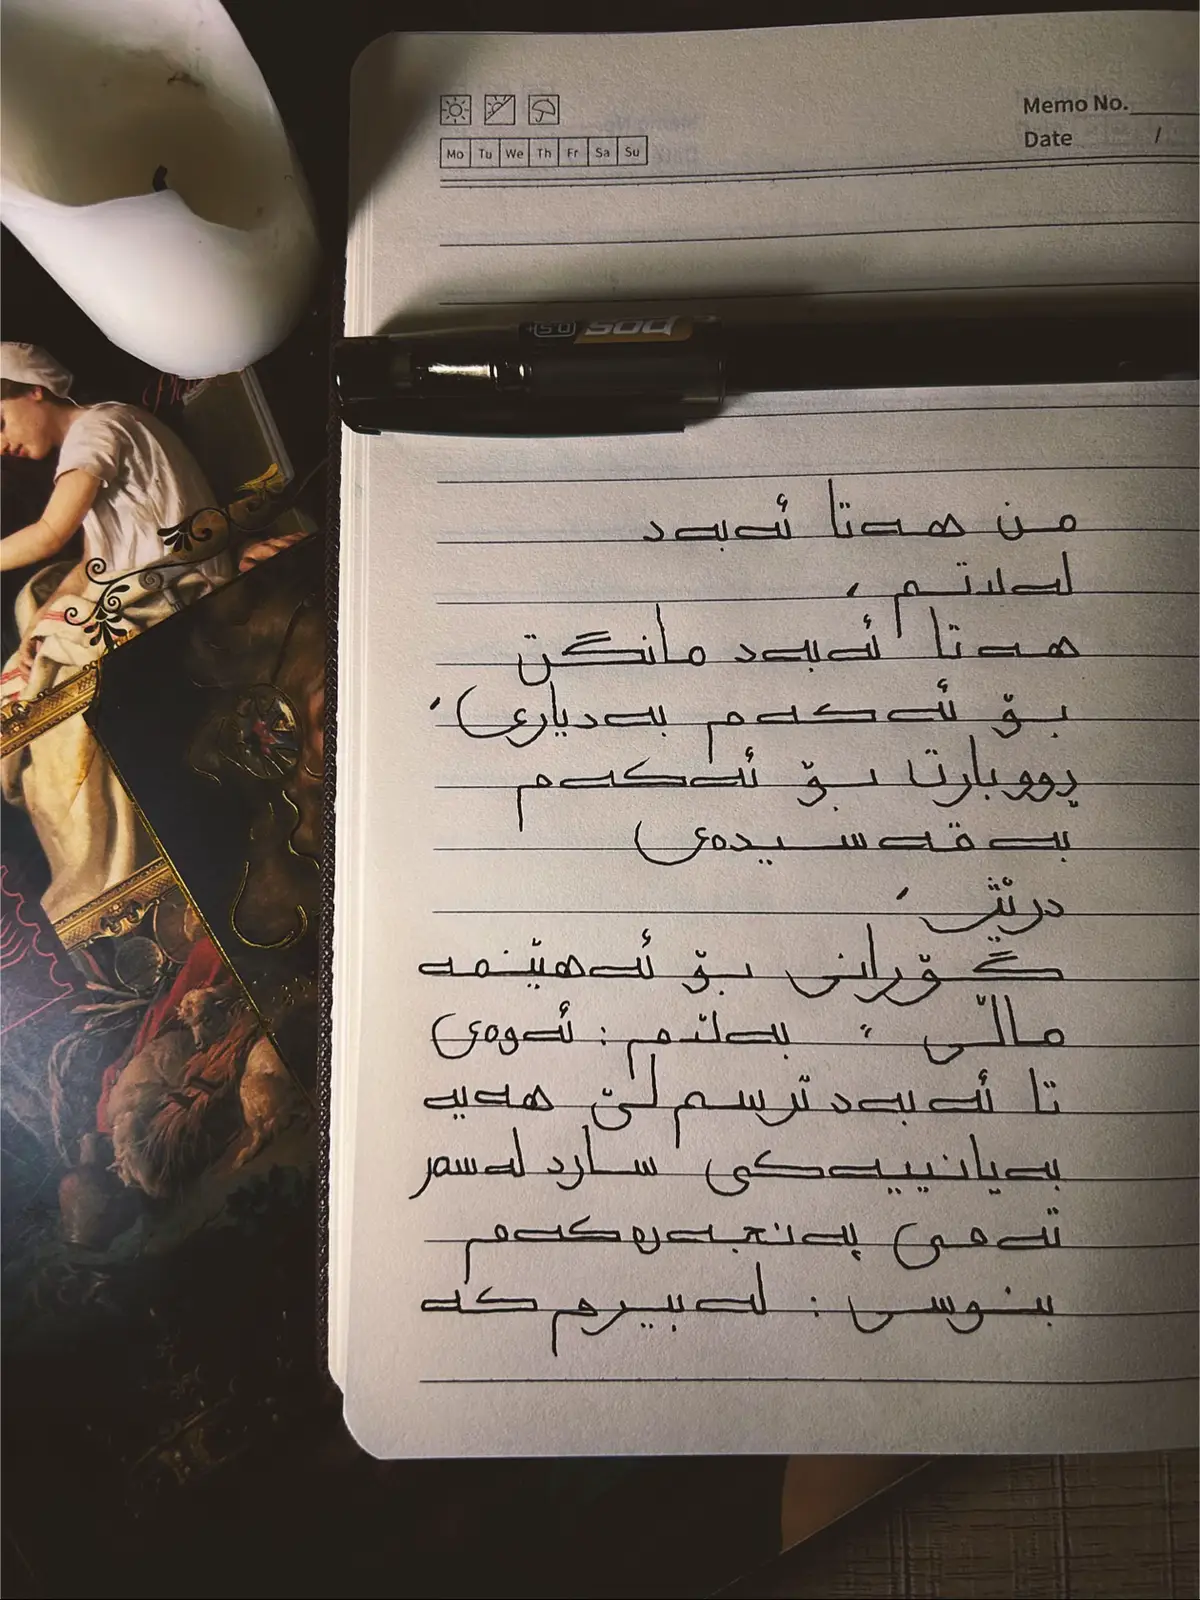 Memo No.
Date /
Mo Tu We Th Fr Sa Su
0.5
من هەتا ئەبەد
لەلاتم ،
هەتا ئەبەد مانگت
بۆ ئەکەم بەدیاری ،
ڕووبارتا بۆ ئەکەم
بە قەسیدەی
درێژ ،
گۆرانی بۆ ئەهێنمە
ماڵێ ، بەڵام : ئەوەی
تا ئەبەد ترسم لێ هەیە
بەیانییەکی سارد لەسەر
تەمی پەنجەرەکەم
بنوسی : لەبیرم کە